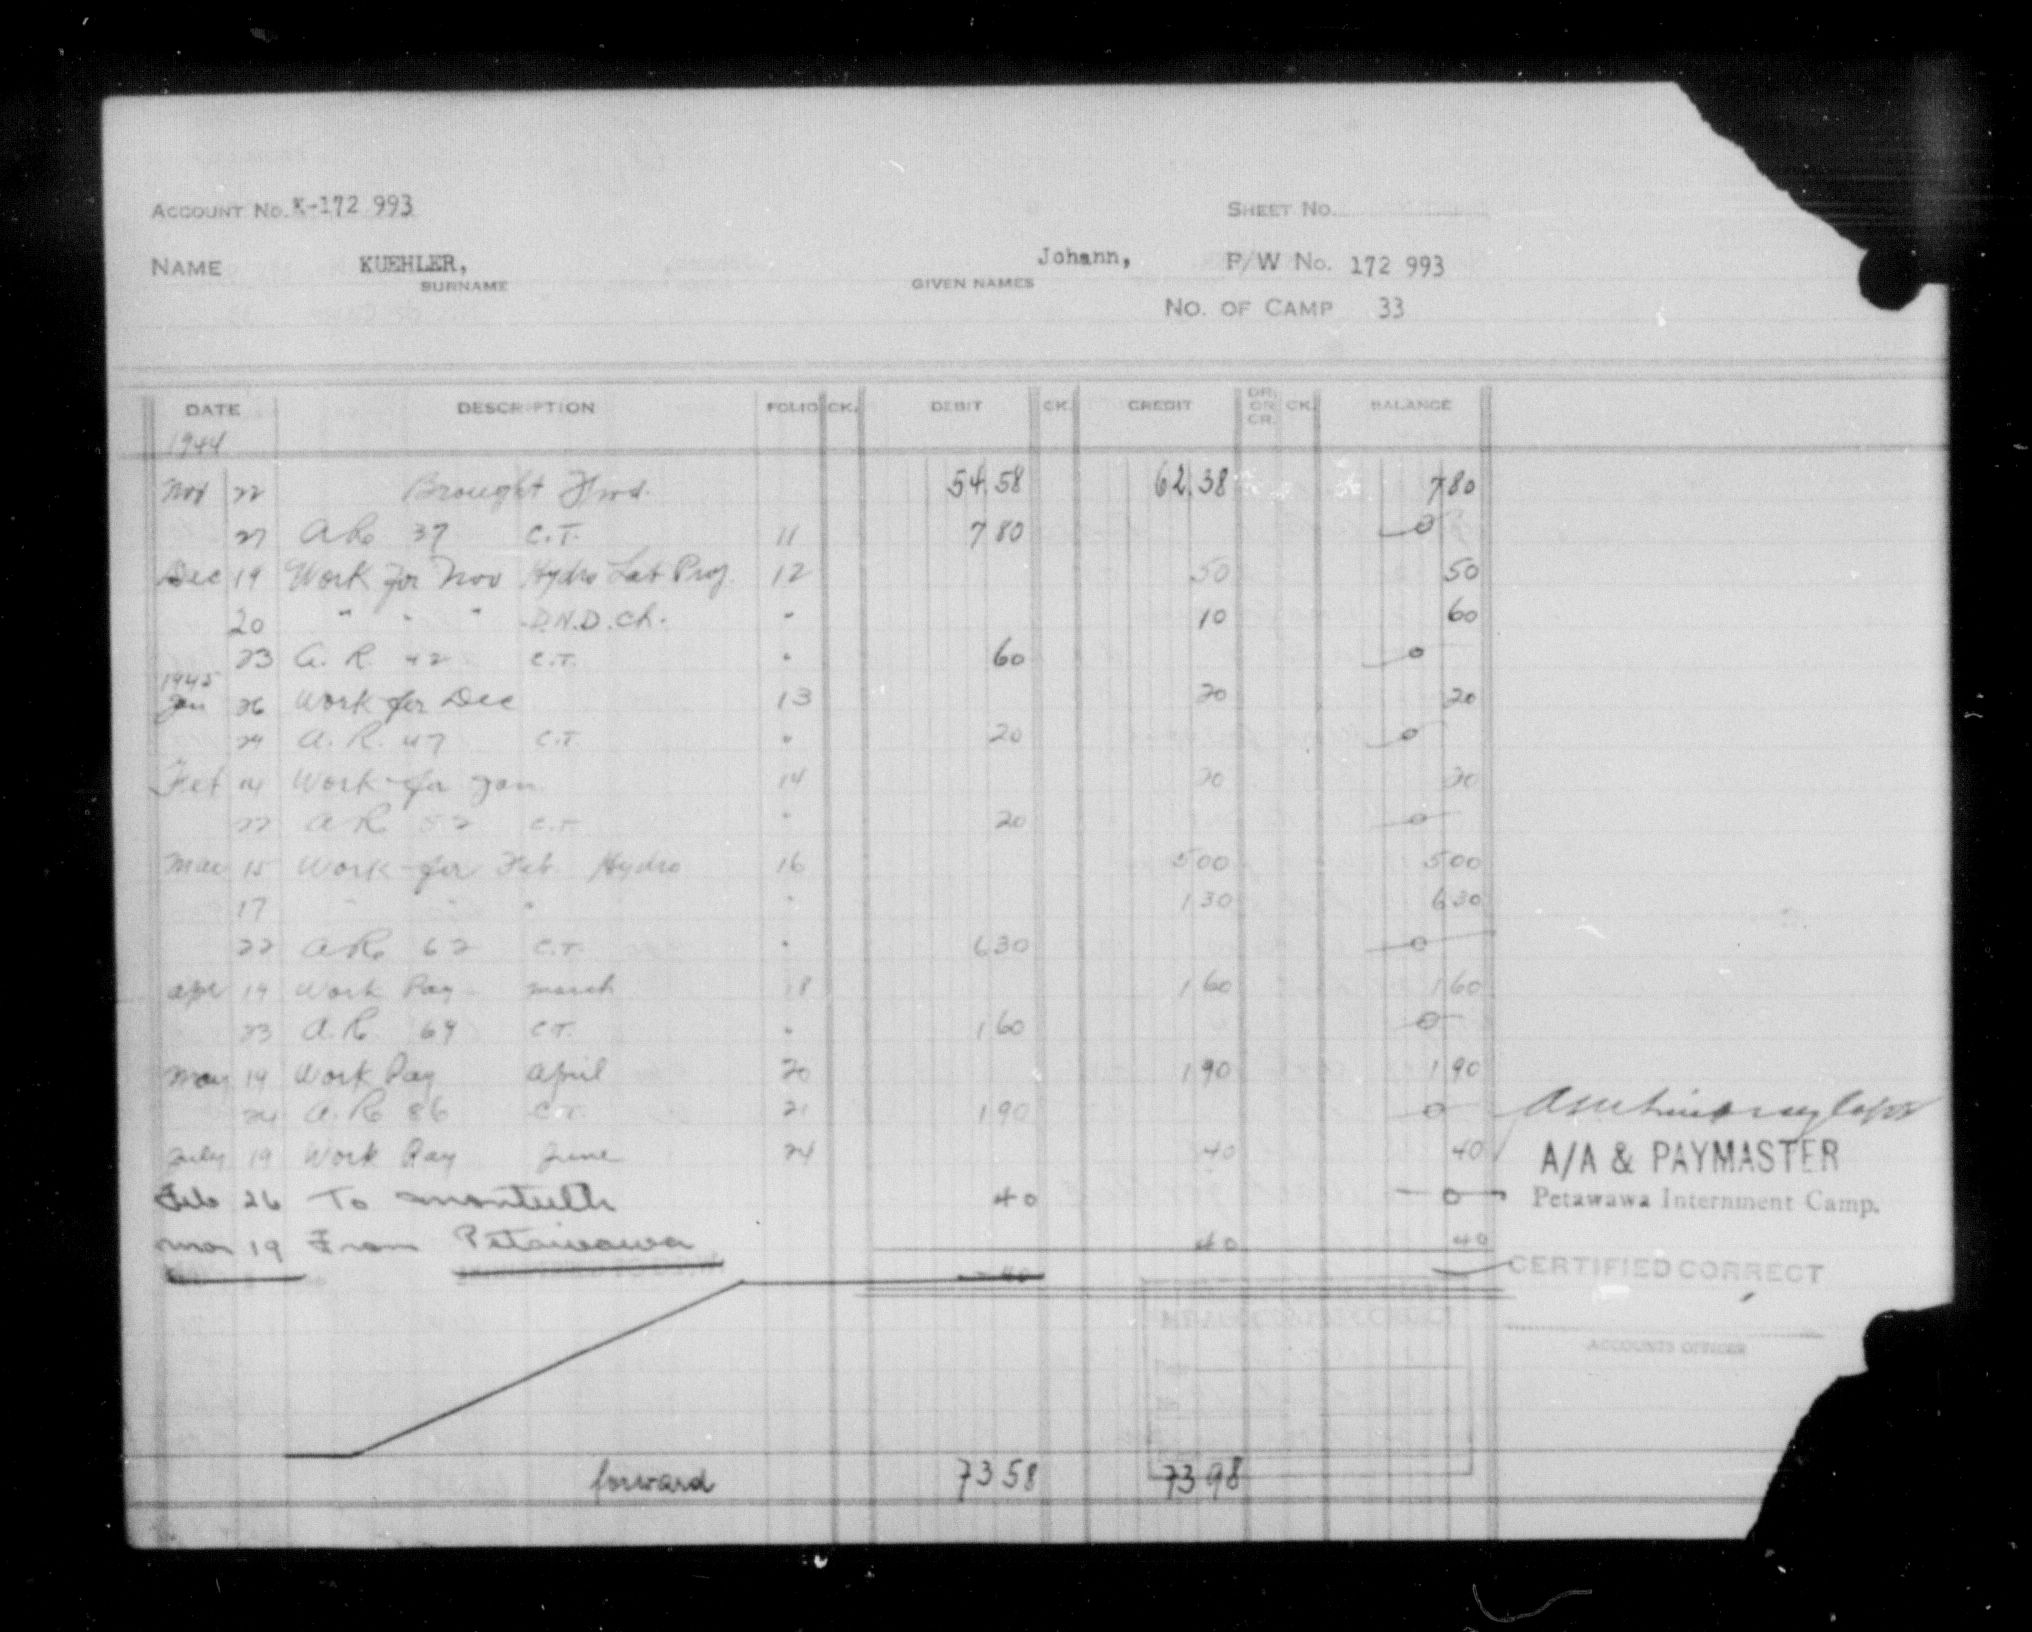 ACCOUNT No. K-172 993 SHEET No.
NAME KUEHLER, Johann, P/W No. 172 993
SURNAME GIVEN NAMES
No. OF CAMP 33
DATE DESCRIPTION FOLIO CK. DEBIT CK. CREDIT DR. OR CR. CK. BALANCE
1944
Nov 22 Brought Fwd. 54.58 62.38 7 80
27 A R 37 C.T. 11 7 80 0
Dec 19 Work for Nov Hydro Lab Proj. 12 50 50
20 " " " D.N.D. Ch. " 10 60
23 A. R. 42 C.T. " 60 0
1945
Jan 26 Work for Dec 13 20 20
29 A. R. 47 C.T. " 20 0
Feb 21 Work for Jan 14 20 20
22 A R 52 C.T. " 20 0
Mar 15 Work for Feb Hydro 16 5 00 5 00
17 " " " " 1 30 6 30
22 A R 62 C.T. " 6 30 0
Apr 19 Work Pay March 18 1 60 1 60
23 A. R. 69 C.T. " 1 60 0
May 19 Work Pay April 20 1 90 1 90
24 A. R. 86 C.T. 21 1 90 0
July 19 Work Pay June 24 40 40
Feb 26 To Monteith 40 0
Mar 19 From Petawawa 40 40
A/A & PAYMASTER
Petawawa Internment Camp.
CERTIFIED CORRECT
ACCOUNTS OFFICER
forward 73 58 73 98